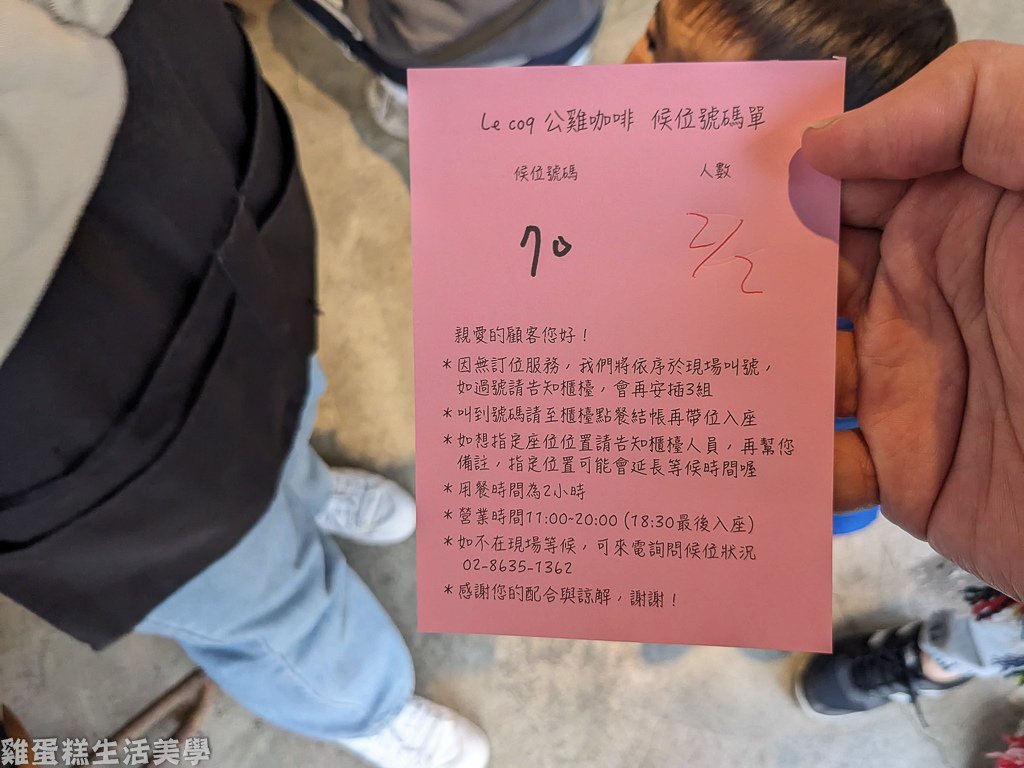 Le coq 公雞咖啡 候位號碼單
候位號碼 人數
70 2/2
親愛的顧客您好！
*因無訂位服務，我們將依序於現場叫號，
如過號請告知櫃檯，會再安插3組
*叫到號碼請至櫃檯點餐結帳再帶位入座
*如想指定座位位置請告知櫃檯人員，再幫您
備註，指定位置可能會延長等候時間喔
*用餐時間為2小時
*營業時間11:00~20:00 (18:30最後入座)
*如不在現場等候，可來電詢問候位狀況
02-8635-1362
*感謝您的配合與諒解，謝謝！
雞蛋糕生活美學